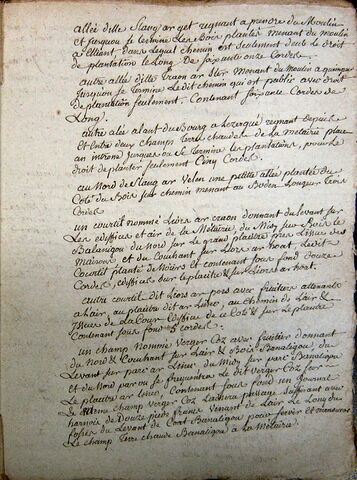 allée ditte Stang ar get regnant a prendre du Moulin
et jusquou se termine Les Bois plantés menant du moulin
a Elliant, dans Lequel chemin est seulement deub le droit
de plantation le Long de soixante onze Cordes
autre allée ditte Traon ar Ster Menant du Moulin a quimper
jusquou se Termine Ledit chemin qui est public avec droit
de plantation seulement. Contenant soixante Cordes de
Long.
autre alé alant du Bourg a Lezergué regnant depuis
et Entre deux champs Terre chaudes de la metairie place
an intron jusques ou se Termine les plantations, pour le
droit de planter seulement Cinq Cordes.
au Nord de Stang ar Velin une petitte allée plantée du
Coté du Bois sur chemin menant au Boden Longueur Trois
Cordes
un courtil nommé Leiors ar creion donnant du Levant sur
Les ediffices et air de la Metairie, du Midy sur Bois le
Balanegou du Nord sur Le grand placitre pres Lissue des
Maisons et du Couhant sur Liors ar hoat. Ledit
Courtil planté de Noiers et contenant sous fond douze
Cordes, ediffice sur le placitre et sur Liors ar hoat.
autre courtil dit Liors ar poes avec fruitiers attenant
a Lair, au placitre dit ar Leure, au Chemin de Lair &
Issues de La Cour Ediffice de ce Coté et sur Le placitre
Contenant sous fond 5 cordes.
un champ Nommé Verger Coz avec fruitier donnant
du Nord & Couhant sur Lair & Bois Banaligou, du
Levant sur parc ar Leur, du Midy sur parc Banaligou
et du Nord par ou se frequente Ledit Verger Coz sur
Le placitre ar Leur, Contenant sous fond un Journal
Le meme champ Verger Coz Laissera passage suffisant avec
harnois de Douze pieds francs Venant de Lair Le Long du
fossés du Levant de Coat Banaligou pour servir et manoeuvrer
Le champ Terre chaude Banaligou a la Métairie.